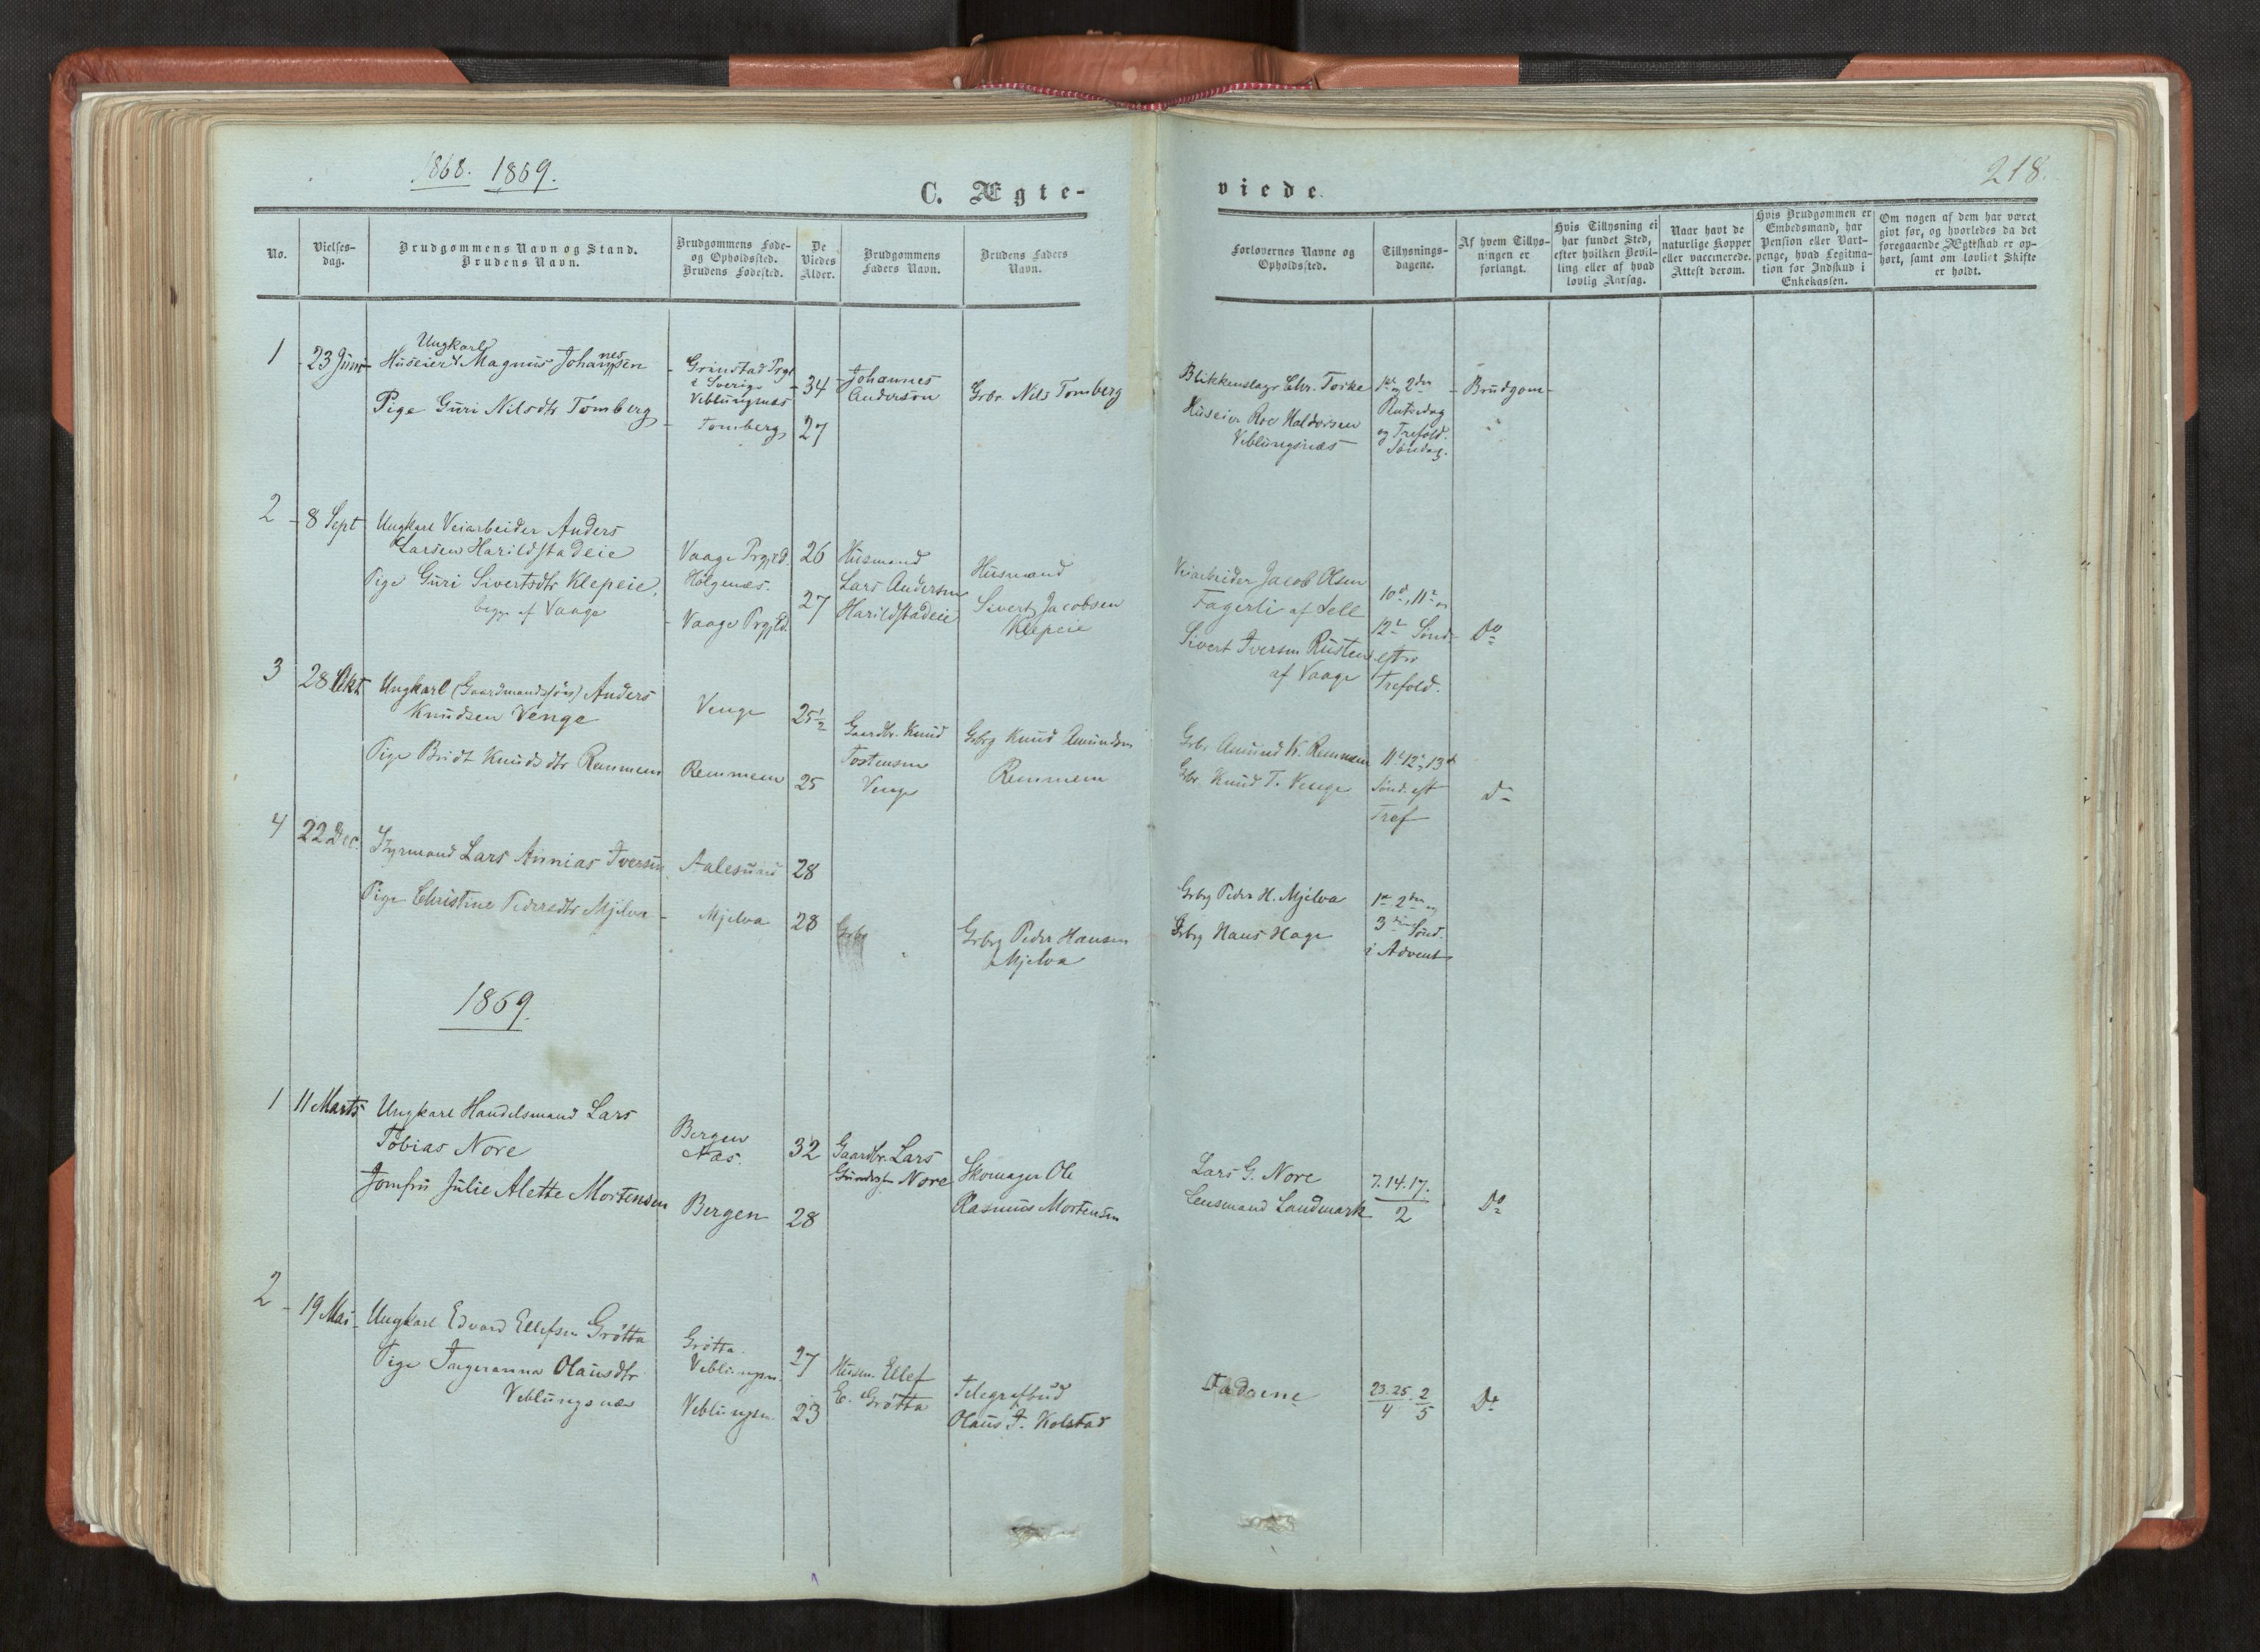 1868. 1869.
C. Ægte-
viede.
218.
No.
Vielses-
dag.
Brudgommens Navn og Stand.
Brudens Navn.
Brudgommens Føde-
og Opholdssted.
Brudens Fødested.
De
Viedes
Alder.
Brudgommens
Faders Navn.
Brudens Faders
Navn.
Forlovernes Navne og
Opholdssted.
Tillysnings-
dagene.
Af hvem Tillys-
ningen er
forlangt.
Hvis Tillysning ei
har fundet Sted,
efter hvilken Bevil-
ling eller af hvad
lovlig Aarsag.
Naar havt de
naturlige Kopper
eller vaccinerede.
Attest derom.
Hvis Brudgommen er
Embedsmand, har
Pension eller Vart-
penge, hvad Legitma-
tion for Indskud i
Enkekassen.
Om nogen af dem har været
givt før, og hvorledes da det
foregaaende Ægtskab er op-
hørt, samt om lovligt Skifte
er holdt.
1
23 Juni
Ungkarl
Huseier Magnus Johannessen
Pige Guri Nilsdtr Tomberg
Grinstad Prgj
i Sverige
Veblungnæs
Tomberg
34
27
Johannes
Anderson
Grbr. Nils Tomberg
Blikkenslagr Chr. Torke
Huseier Roe Haldorsen
Veblungsnæs
1ste og 2den
Pintsedag
og Trefold.
Søndag.
Brudgom
2
8 Sept
Ungkarl Veiarbeider Anders
Larsen Harildstadeie
Pige Guri Sivertsdtr Klepeie,
begge af Vaage
Vaage Prgjeld.
Holgenæs.
Vaage Prgjld.
26
27
Husmand
Lars Andersen
Harildstadeie
Husmand
Sivert Jacobsen
Klepeie
Veiarbeider Jacob Olsen
Fagerli af Lell
Sivert Iversen Rusten
af Vaage
10de, 11te og
12te Sønd
efter
Trefold.
Do
3
28 Okt
Ungkarl (Gaardmandssøn) Anders
Knudsen Venge
Pige Bridt Knudsdtr Remmem
Venge
Remmem
25½
25
Gaardbr. Knud
Tostensen
Venge
Grbrg Knud Amundsen
Remmem
Grbr Amund K. Remmem
Grbr Knud T. Venge
11te 12te, 13de
Sønd. eft
Tref
Do
4
22 Dec.
Styrmand Lars Annias Iversen
Pige Christine Pedersdtr Mjelva
Aalesund
Mjelva
28
28
Grbrg
Grbrg Peder Hansen
Mjelva
Grbrg Peder H. Mjelva
Grbrg Hans Hage
1ste 2den og
3die Sønd.
i Advent
1869.
1
11 Marts
Ungkarl Handelsmand Lars
Tobias Nore
Jomfru Julie Alette Mortensen
Bergen
Næs.
Bergen
32
28
Gaardbr. Lars
Nore
Skomager Ole
Rasmus Mortensen
Lars G. Nore
Lensmand Landmark
7. 14. 17.
2
Do
2
19 Mai
Ungkarl Edvard Ellefsen Grøtta
Pige Ingeranna Olausdtr
Veblungsnæs
Grøtta.
Veblungsn.
Veblungsn
27
23
Husm. Ellef
E. Grøtta
Telegrafbud
Olaus I. Kolstad
Fædrene
23. 25. 2
4 5
Do